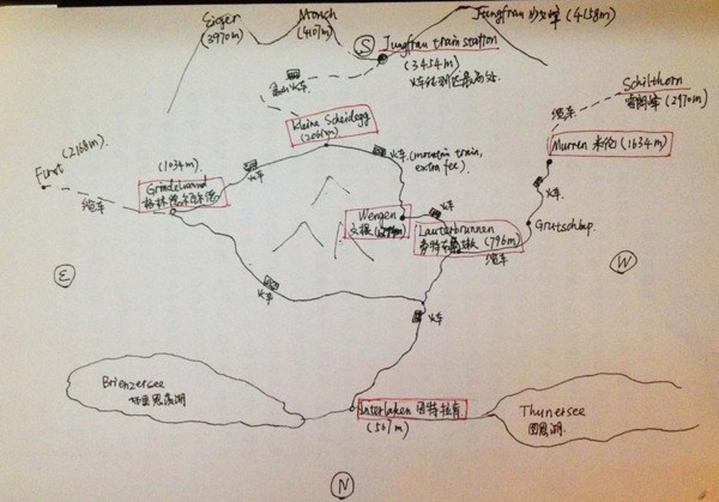 Eiger
(3970m)
Monch
(4107m)
Jungfrau 少女峰 (4158m)
S
Jungfrau train station
(3454m)
火车能到达最高处
高山火车
Schilthorn
雪朗峰 (2970m)
缆车
Kleine Scheidegg
(2061m)
火车 (mountain train,
extra fee)
Murren 米伦 (1634m)
First (2168m)
缆车
(1034m)
Grindelwand
格林德尔瓦尔德
火车
火车
Grutschlap
Wengen
文根
火车
Lauterbrunnen
劳特布鲁嫩 (796m)
缆车
E
W
火车
火车
Brienzersee
布里恩茨湖
Interlaken 因特拉肯
(567m)
Thunersee
图恩湖
N